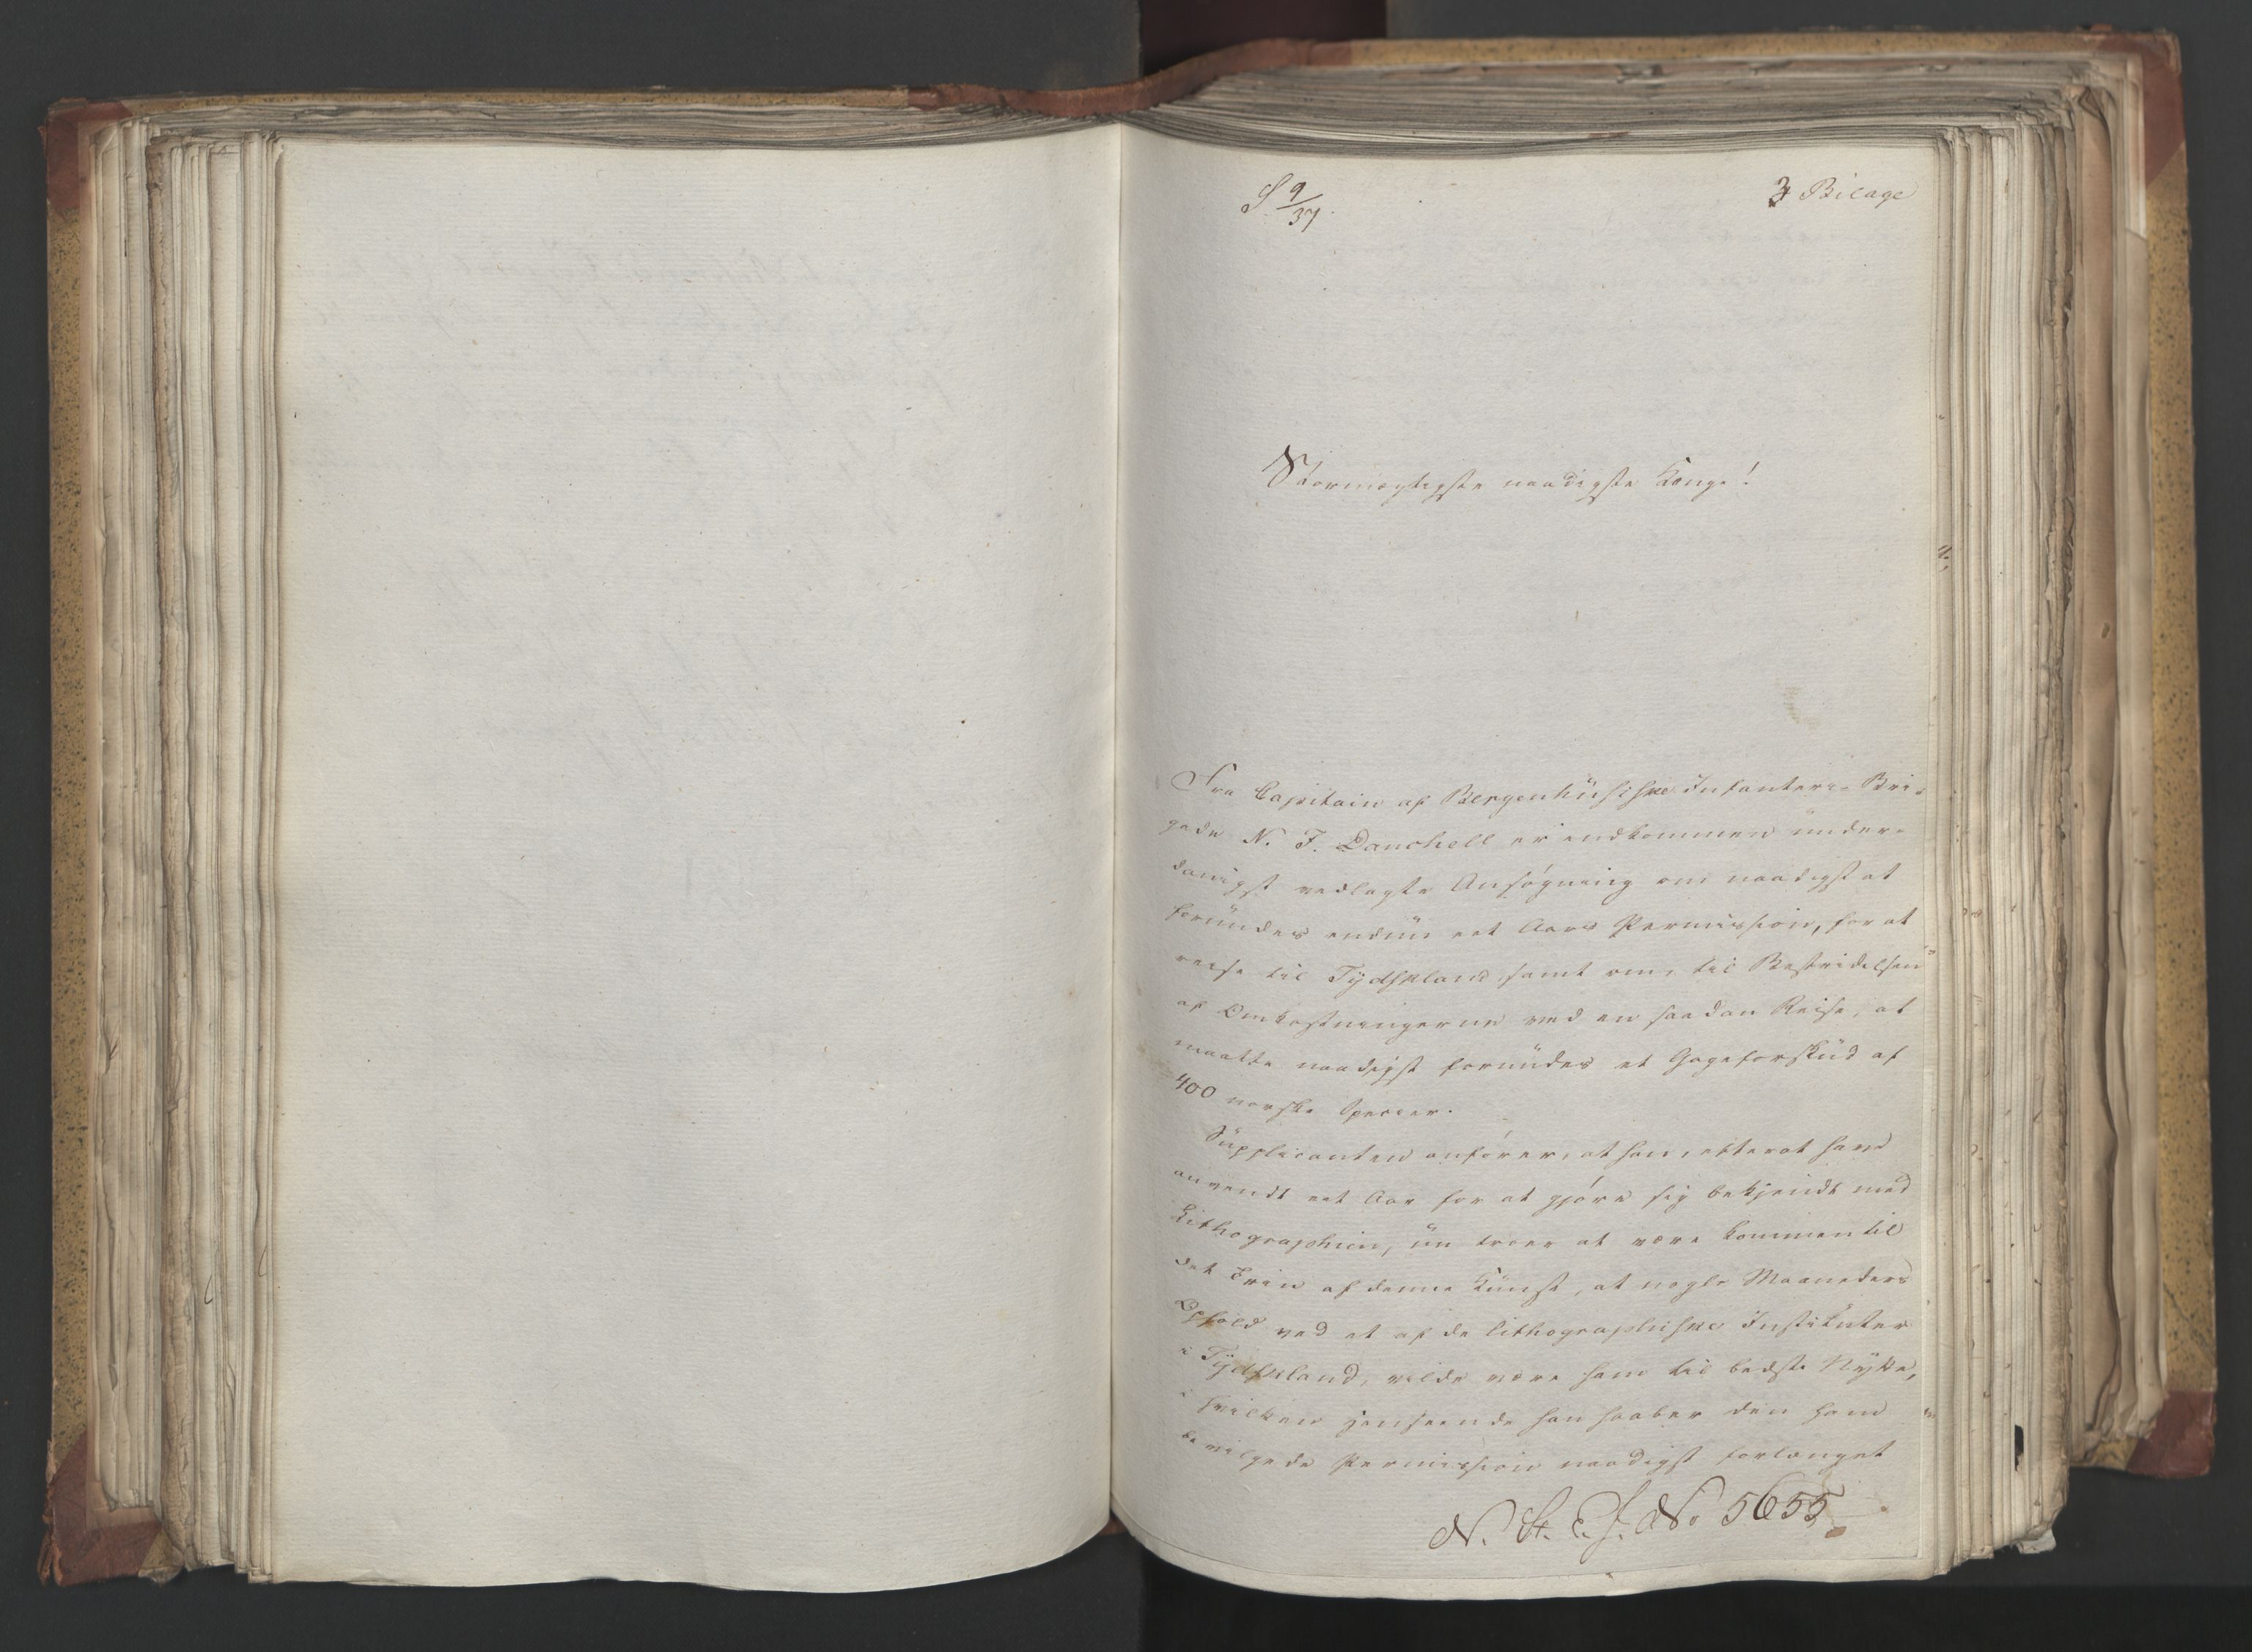 S 9/37.
3 Bilage
Stormægtigste naadigste Konge!
Fra Capitain af Bergenhusiske Infanteri-Bri-
gade N. F. Danchell er indkommen under-
danigst vedlagte Ansøgning om naadigst at
forundes endnu eet Aars Permission, for at
reise til Tydskland samt om, til Bestridelsen
af Omkostningerne ved en saadan Reise, at
maatte naadigst forundes et Gageforskud af
400 norske Species.
Supplicanten anfører, at han, efter at have
anvendt eet Aar for at gjøre sig bekjendt med
Lithographien, nu troer at være kommen til
det Trin af denne Kunst, at nogle Maaneders
Ophold ved et af de lithographiske Institutter
i Tydskland, vilde være ham til bedste Nytte,
i hvilken Henseende han haaber den ham
bevilgede Permission naadigst forlænget
N. St. E. J. No 5655